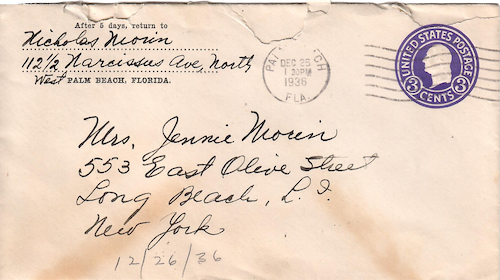 After 5 days, return to
Nicholas Morin
112 1/2 Narcissus Ave, North
West PALM BEACH, FLORIDA.
PALM BEACH
DEC 26
1 30PM
1936
FLA.
UNITED STATES POSTAGE
3 CENTS 3
Mrs. Jennie Morin
553 East Olive Street
Long Beach, L.I.
New York
12/26/36